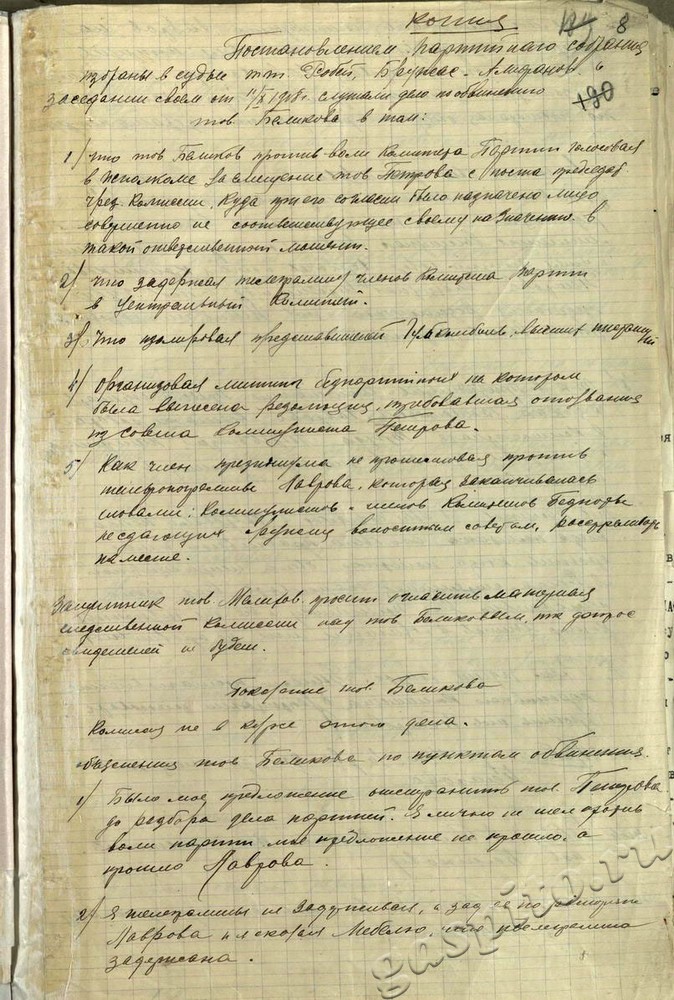 копия
124 8
Постановлением партийного собрания
избраны в судьи тт. Робей, Алифанов и
заседании своем от 11/X 1918 г. слушали дело по обвинению
190
тов. Беликова в том:
1/ что тов Беликов против воли Комитета Партии голосовал
в исполкоме за смещение тов Петрова с поста председат
чрез. Комиссии, куда при его согласии было назначено лицо
совершенно не соответствующее своему назначению в
такой ответственный момент.
2/ что задержал телеграмму членов Комитета партии
в Центральный Комитет.
3/ Что изолировал представителей высших
4/ Организовал митинг безпартийных на котором
была вынесена резолюция, требовавшая отозвания
из совета Коммуниста Петрова.
5/ Как член президиума не протестовал против
телефонограммы Лаврова, которая заканчивалась
словами: Коммунистов и членов Комитетов Бедноты
не сдающих оружия волостным советам, расстреливать
на месте.
Защитник тов. Мелихов просит огласить материал
следственной Комиссии над тов Беликовым, тк допрос
свидетелей не будет.
Показание тов. Беликова
Комиссия не в курсе этого дела.
Объяснения тов Беликова по пунктам обвинения.
1/ Было мое предложение отстранить тов. Петрова
до разбора дела партией. Я лично не шел против
воли партии, мое предложение не прошло, а
прошло Лаврова.
2/ Я телеграммы не задерживал, а зад
Лаврова и я сказал Мебелю, что телеграмма
задержана.
gaspiro.ru